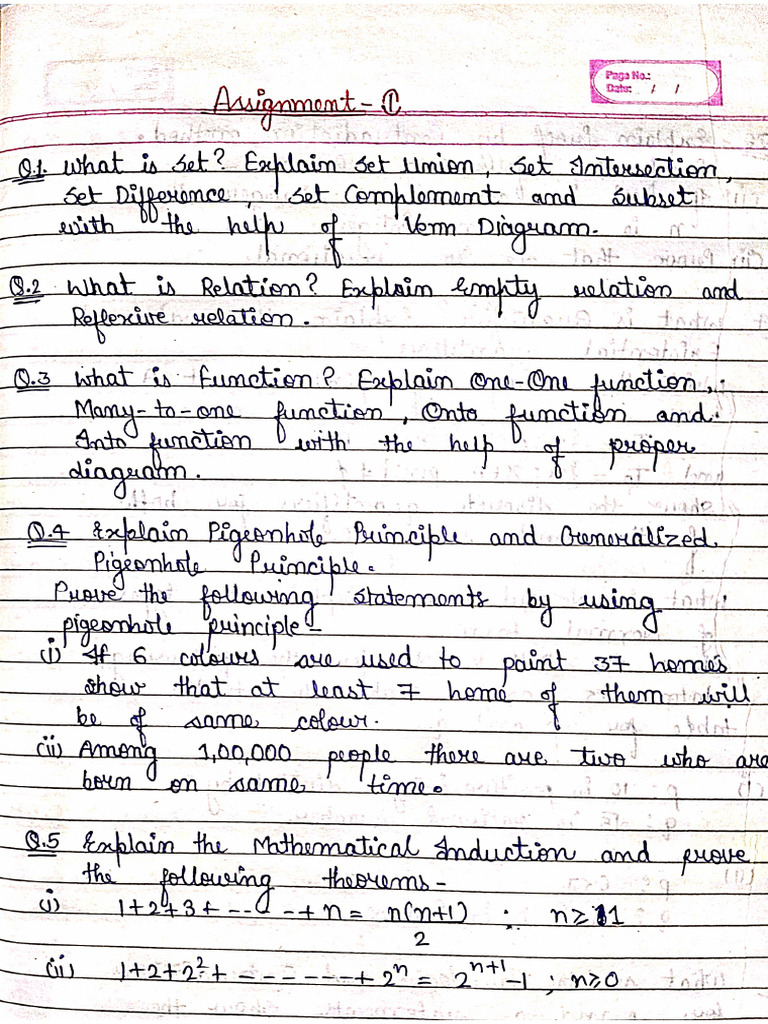 Page No.:
Date: / /
Assignment - ①
Q.1. What is set? Explain set Union, set Intersection,
set Difference, set Complement and subset
with the help of Venn Diagram.
Q.2 What is Relation? Explain Empty relation and
Reflexive relation.
Q.3 What is Function? Explain One-One function,
Many-to-one function, Onto function and
Into function with the help of proper
diagram.
Q.4 Explain Pigeonhole Principle and Generalized
Pigeonhole Principle.
Prove the following statements by using
pigeonhole principle-
(i) If 6 colours are used to paint 37 homes
show that at least 7 home of them will
be of same colour.
(ii) Among 1,00,000 people there are two who are
born on same time.
Q.5 Explain the Mathematical Induction and prove
the following theorems-
(i) 1+2+3+-----+n = n(n+1) ; n≥1
2
(ii) 1+2+2²+------+2ⁿ = 2ⁿ⁺¹-1 ; n≥0